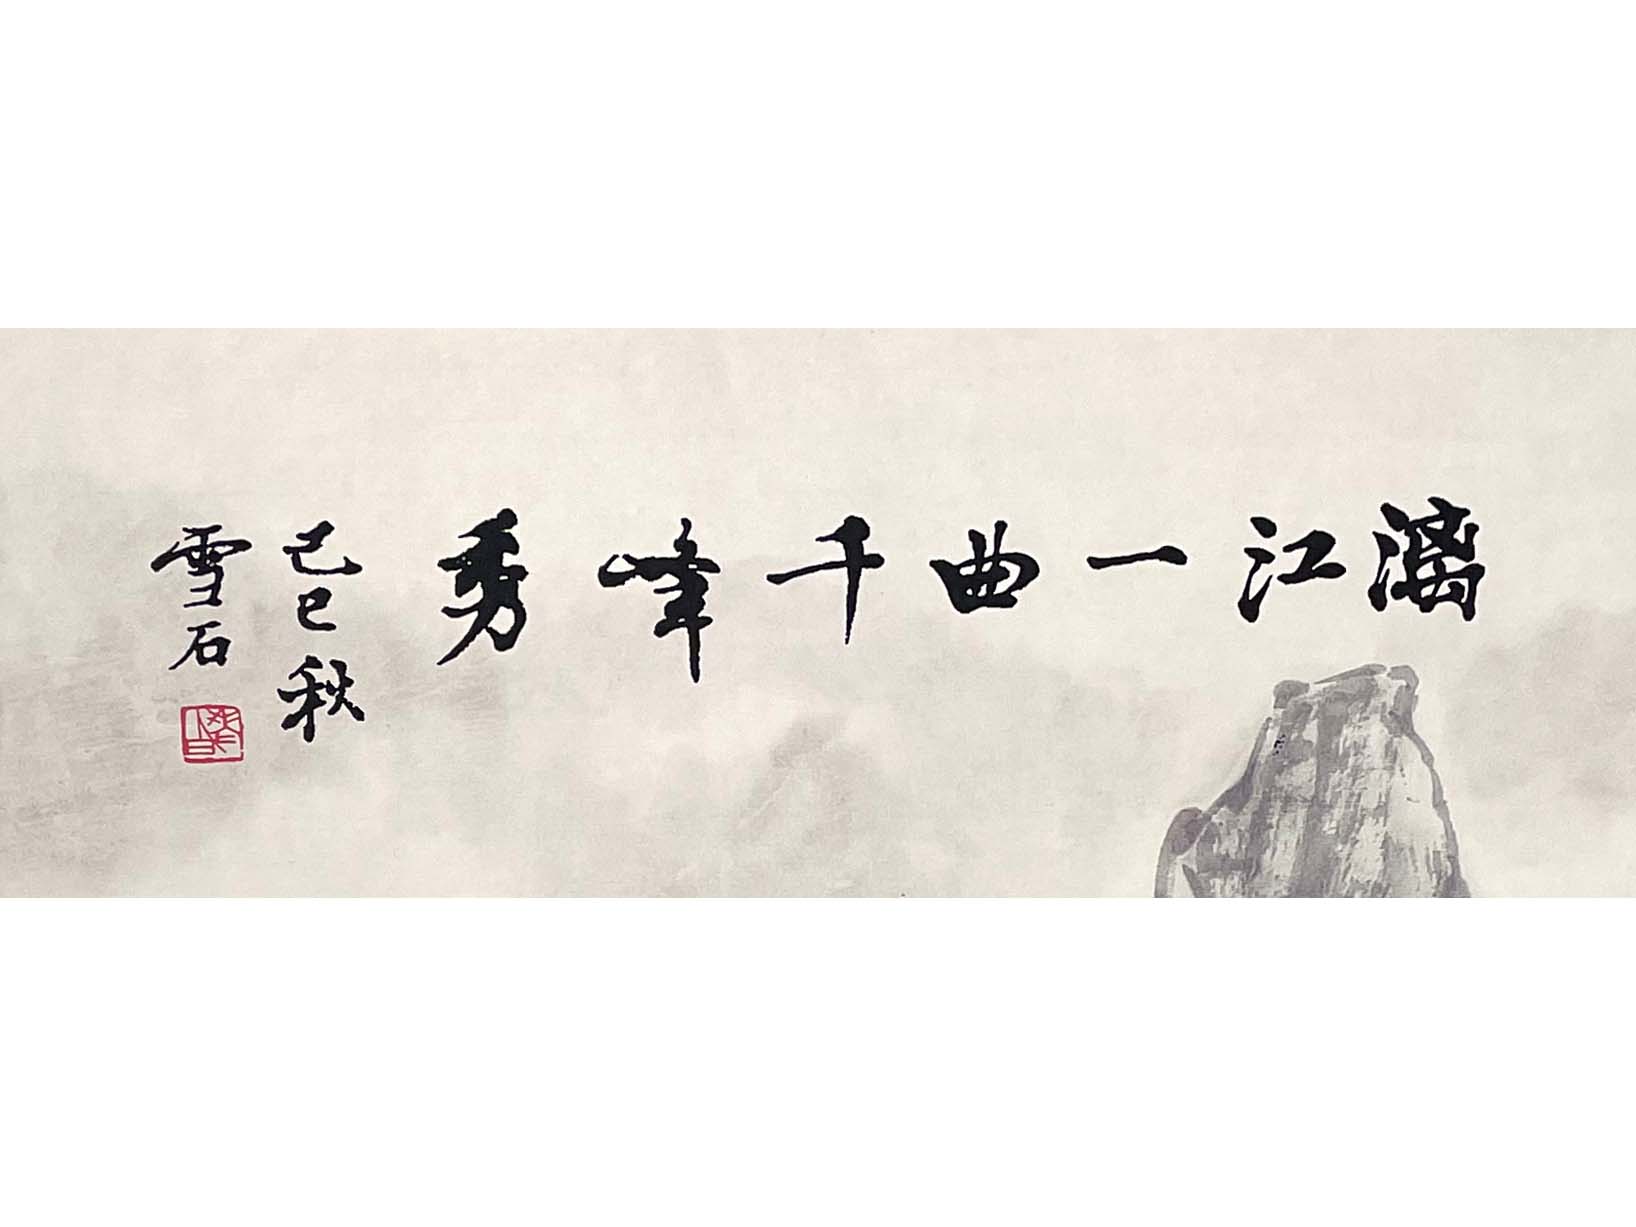 漓江一曲千峰秀
己巳秋
雪石